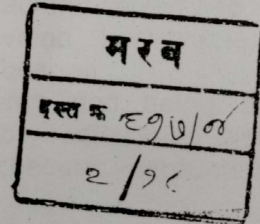 मरब
दस्त क्र ६९७/०४
२/१८